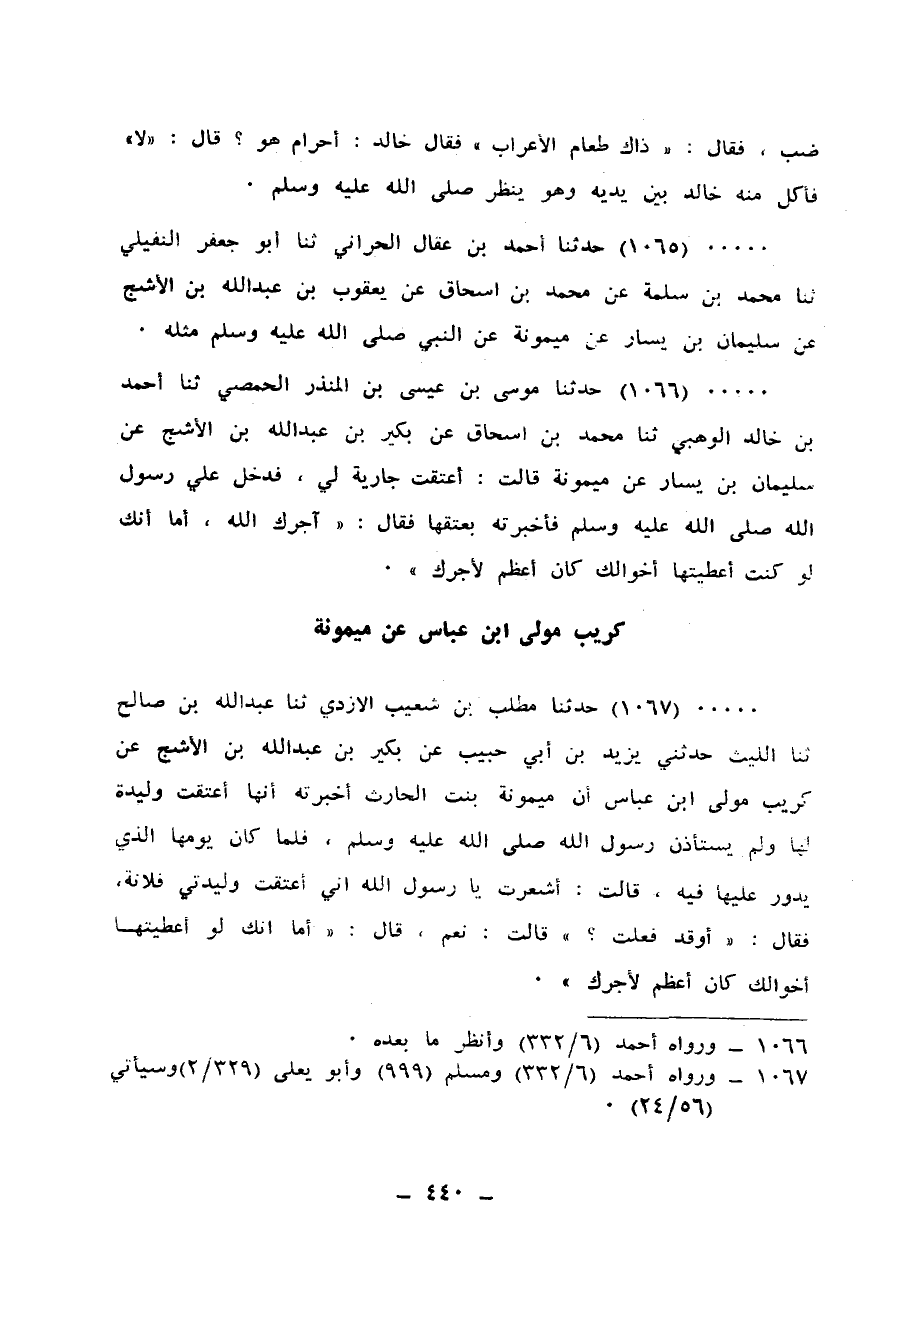 ضب ، فقال : « ذاك طعام الأعراب » فقال خالد : أحرام هو ؟ قال : «لا»
فأكل منه خالد بين يديه وهو ينظر صلى الله عليه وسلم .
..... (١٠٦٥) حدثنا أحمد بن عقال الحراني ثنا أبو جعفر النفيلي
ثنا محمد بن سلمة عن محمد بن اسحاق عن يعقوب بن عبدالله بن الأشج
عن سليمان بن يسار عن ميمونة عن النبي صلى الله عليه وسلم مثله .
..... (١٠٦٦) حدثنا موسى بن عيسى بن المنذر الحمصي ثنا أحمد
بن خالد الوهبي ثنا محمد بن اسحاق عن بكير بن عبدالله بن الأشج عن
سليمان بن يسار عن ميمونة قالت : أعتقت جارية لي ، فدخل علي رسول
الله صلى الله عليه وسلم فأخبرته بعتقها فقال : « آجرك الله ، أما أنك
لو كنت أعطيتها أخوالك كان أعظم لأجرك » .
كريب مولى ابن عباس عن ميمونة
..... (١٠٦٧) حدثنا مطلب بن شعيب الازدي ثنا عبدالله بن صالح
ثنا الليث حدثني يزيد بن أبي حبيب عن بكير بن عبدالله بن الأشج عن
كريب مولى ابن عباس أن ميمونة بنت الحارث أخبرته أنها أعتقت وليدة
لها ولم يستأذن رسول الله صلى الله عليه وسلم ، فلما كان يومها الذي
يدور عليها فيه ، قالت : أشعرت يا رسول الله اني أعتقت وليدتي فلانة،
فقال : « أوقد فعلت ؟ » قالت : نعم ، قال : « أما انك لو أعطيتهـا
أخوالك كان أعظم لأجرك » .
١٠٦٦ ــ ورواه أحمد (٣٣٢/٦) وأنظر ما بعده .
١٠٦٧ ــ ورواه أحمد (٣٣٢/٦) ومسلم (٩٩٩) وأبو يعلى (٢/٣٢٩)وسيأتي
(٢٤/٥٦) .
ــ ٤٤٠ ــ